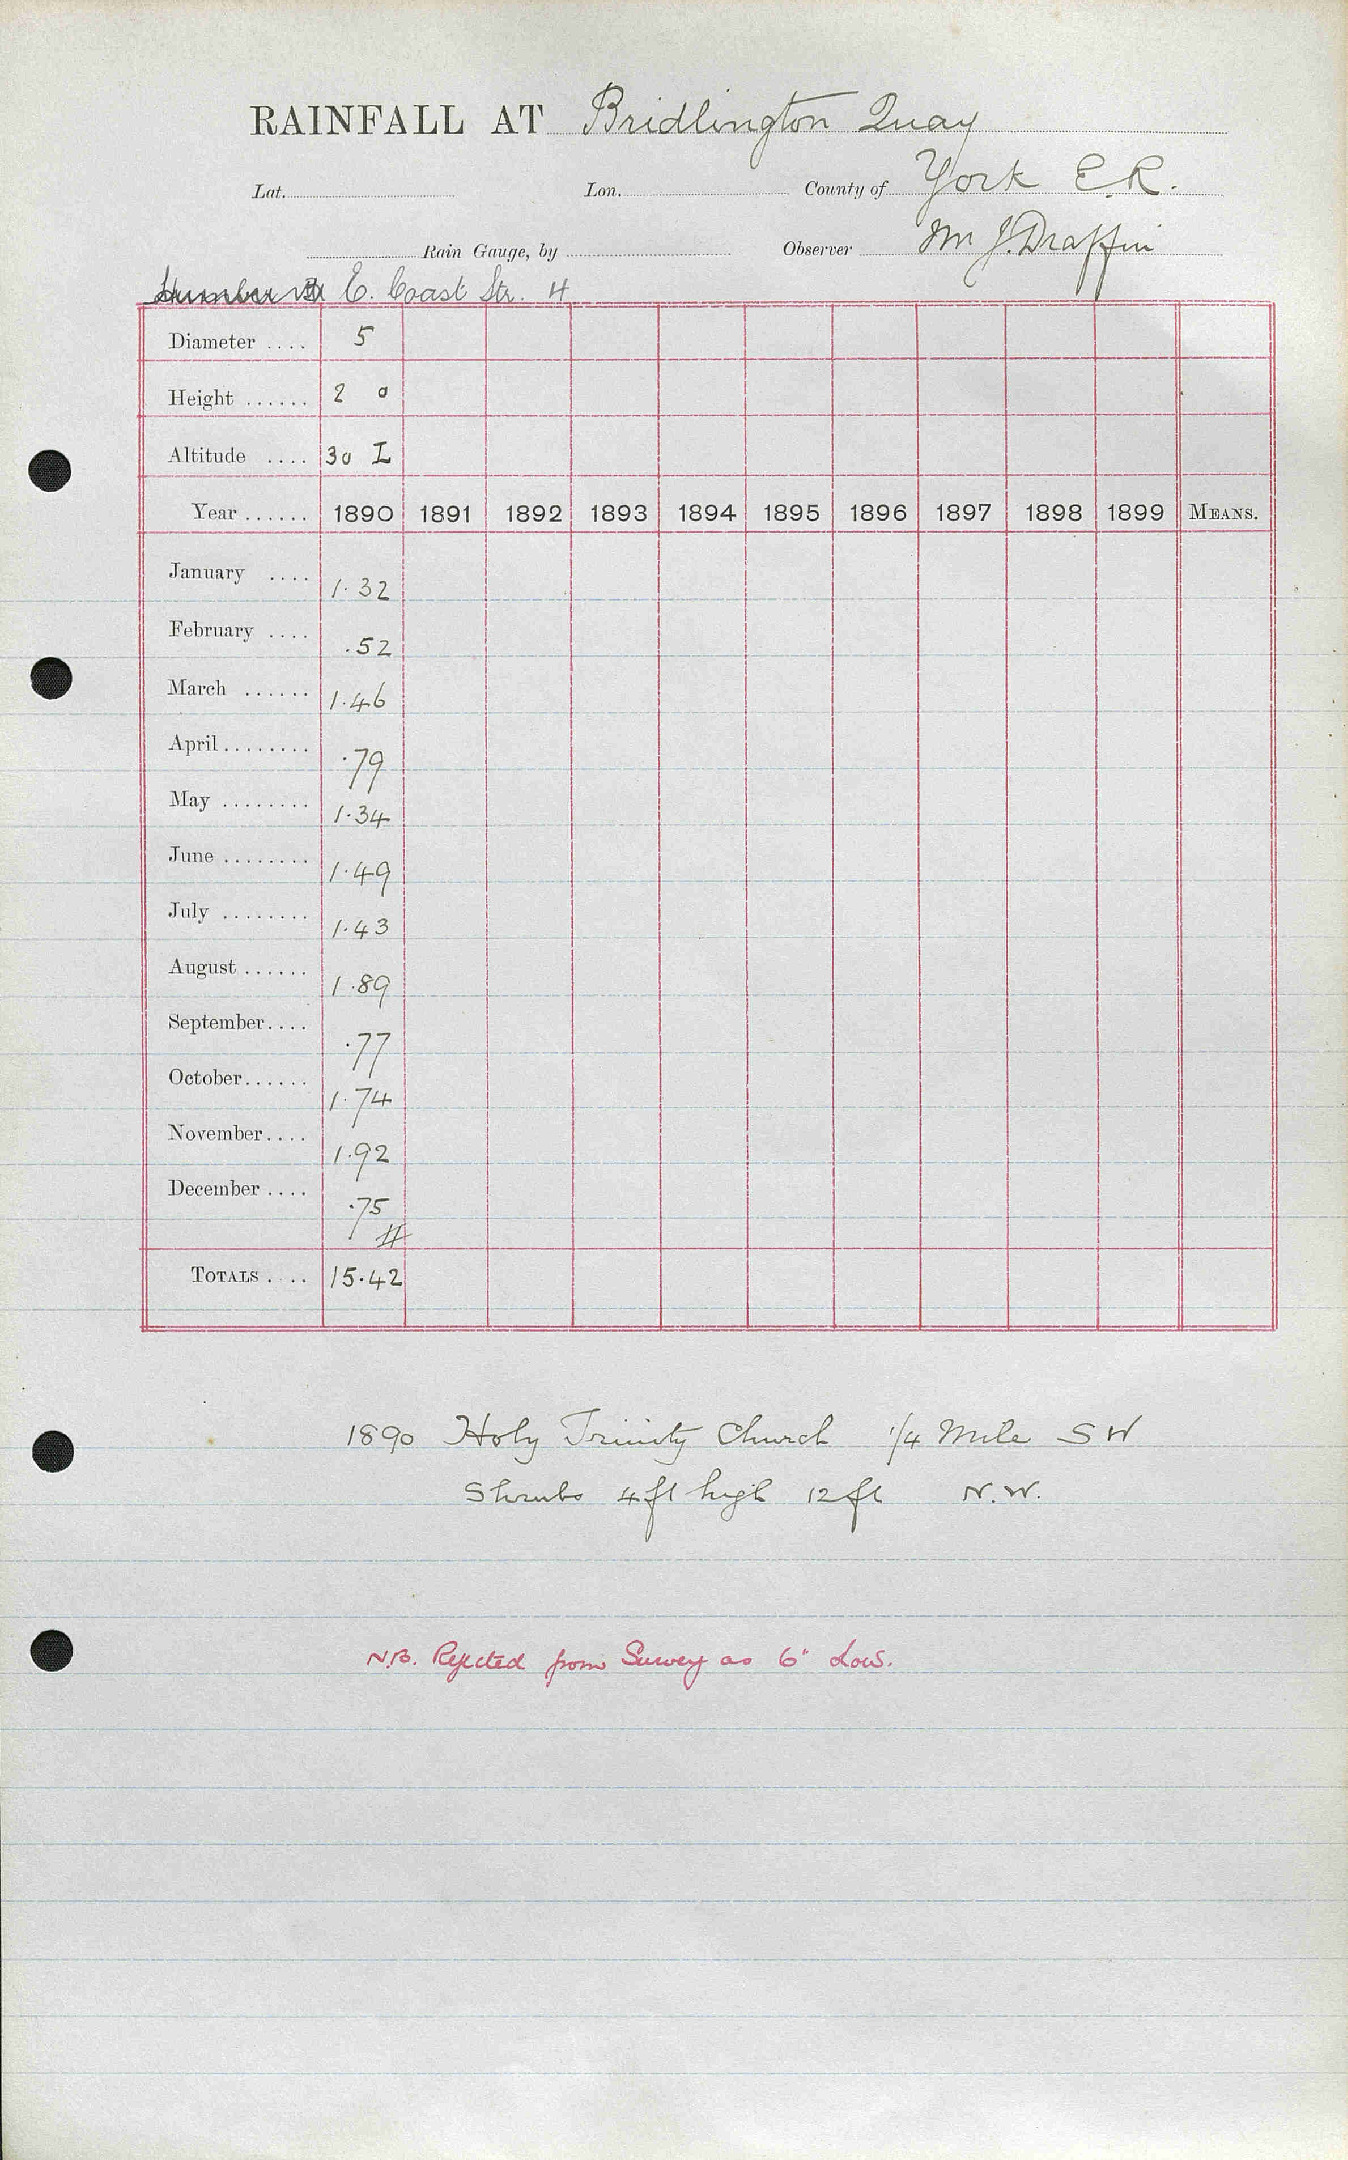 RAINFALL AT Bridlington Quay
Lat. Lon. County of York E.R.
Rain Gauge, by Observer Mr J. Draffin
Humber E. Coast Str. 4
Diameter .... 5
Height ...... 2 0
Altitude .... 30 I
Year ...... 1890 1891 1892 1893 1894 1895 1896 1897 1898 1899 MEANS.
January .... 1.32
February .... .52
March ...... 1.46
April ........ .79
May ........ 1.34
June ........ 1.49
July ........ 1.43
August ...... 1.89
September .... .77
October ...... 1.74
November .... 1.92
December .... .75
TOTALS .... 15.42
1890 Holy Trinity Church 1/4 Mile S W
Shrubs 4 ft high 12 ft N.W.
N.B. Rejected from Survey as 6" Low.